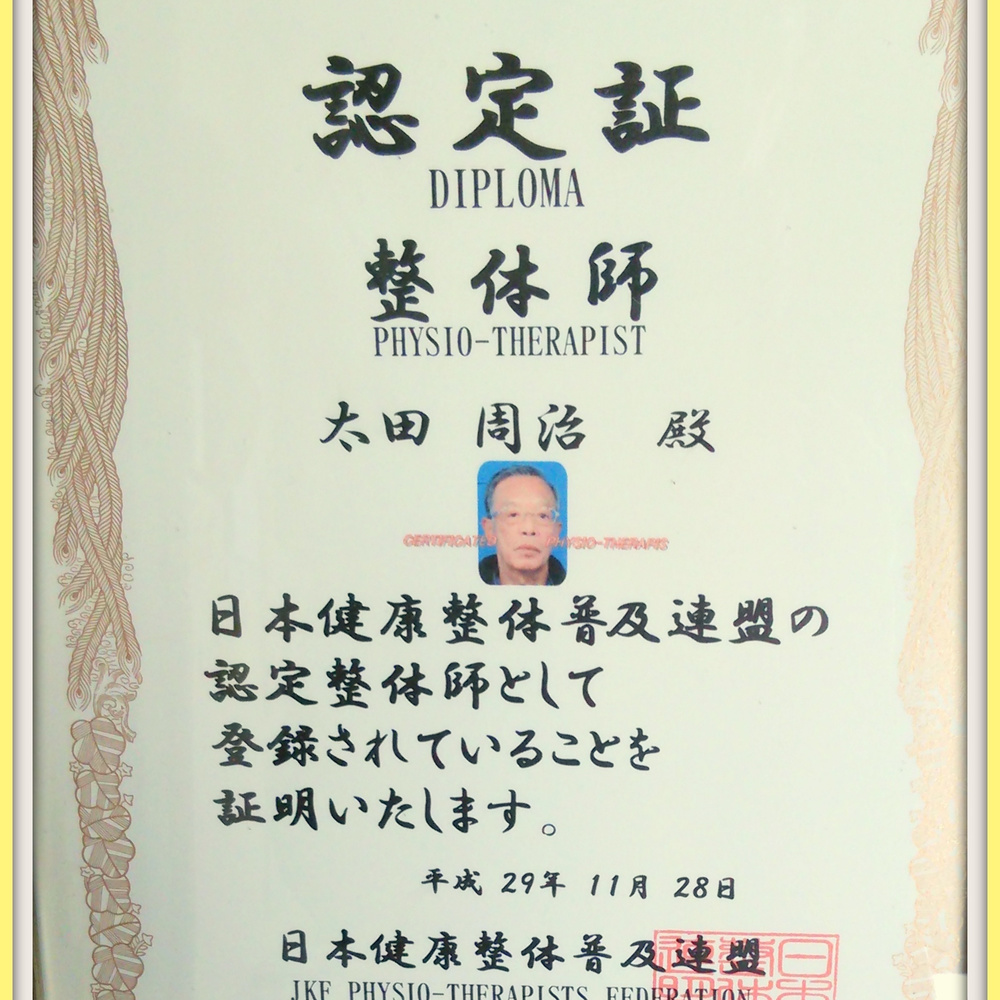 認定証
DIPLOMA
整体師
PHYSIO-THERAPIST
太田 周治 殿
CERTIFICATED PHYSIO-THERAPIS
日本健康整体普及連盟の
認定整体師として
登録されていることを
証明いたします。
平成 29年 11月 28日
日本健康整体普及連盟
JKF PHYSIO-THERAPISTS FEDERATION